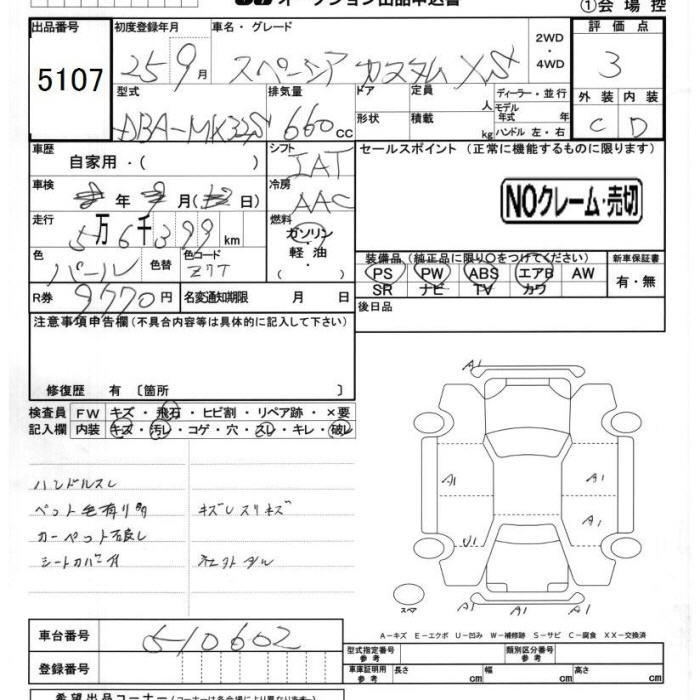 オークション出品申込書 ①会場控
出品番号 初度登録年月 車名・グレード 2WD・4WD 評価点
5107 25 9月 スペーシア カスタム XS 3
型式 排気量 ドア 定員 人 ディーラー・並行 外装 内装
DBA-MK32S 660cc 形状 積載 kg モデル年式 年式 ハンドル 左・右 C D
車歴 自家用・( ) シフト IAT セールスポイント (正常に機能するものに限ります)
車検 年 9月( 日) 冷房 AAC NOクレーム・売切
走行 5万6千399km 燃料 ガソリン・軽油
色 パール 色替 色コード Z7T 装備品(純正品に限り○をつけてください) 新車保証書
PS PW ABS エアB AW 有・無
SR ナビ TV カワ
R券 9770円 名変通知期限 月 日 後日品
注意事項申告欄(不具合内容等は具体的に記入して下さい)
修復歴 有 〔箇所 〕
検査員 FW キズ・飛石・ヒビ割・リペア跡・×要
記入欄 内装 キズ・汚レ・コゲ・穴・スレ・キレ・破レ
ハンドルスレ
ペット毛有り
キズレスリキズ
カーペット汚
シートカバー
A1
A1 A1
A1
U1
スペア A1 A1
A-キズ E-エクボ U-凹み W-補修跡 S-サビ C-腐食 XX-交換済
車台番号 610602 型式指定番号 参考 類別区分番号 参考
登録番号 車庫証明用 参考 長さ cm 幅 cm 高さ cm
希望出品コーナー